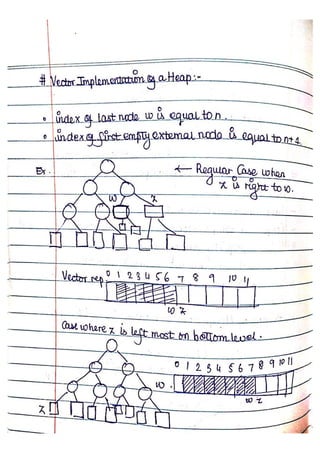 # Vector Implementation of a Heap:-
• index of last node w is equal to n.
• index of first empty external node is equal to n+1
Ex.
← Regular Case when
z is right to w.
w z
Vector rep 0 1 2 3 4 5 6 7 8 9 10 11
w z
Case where z is left most on bottom level.
0 1 2 3 4 5 6 7 8 9 10 11
w
w z
z